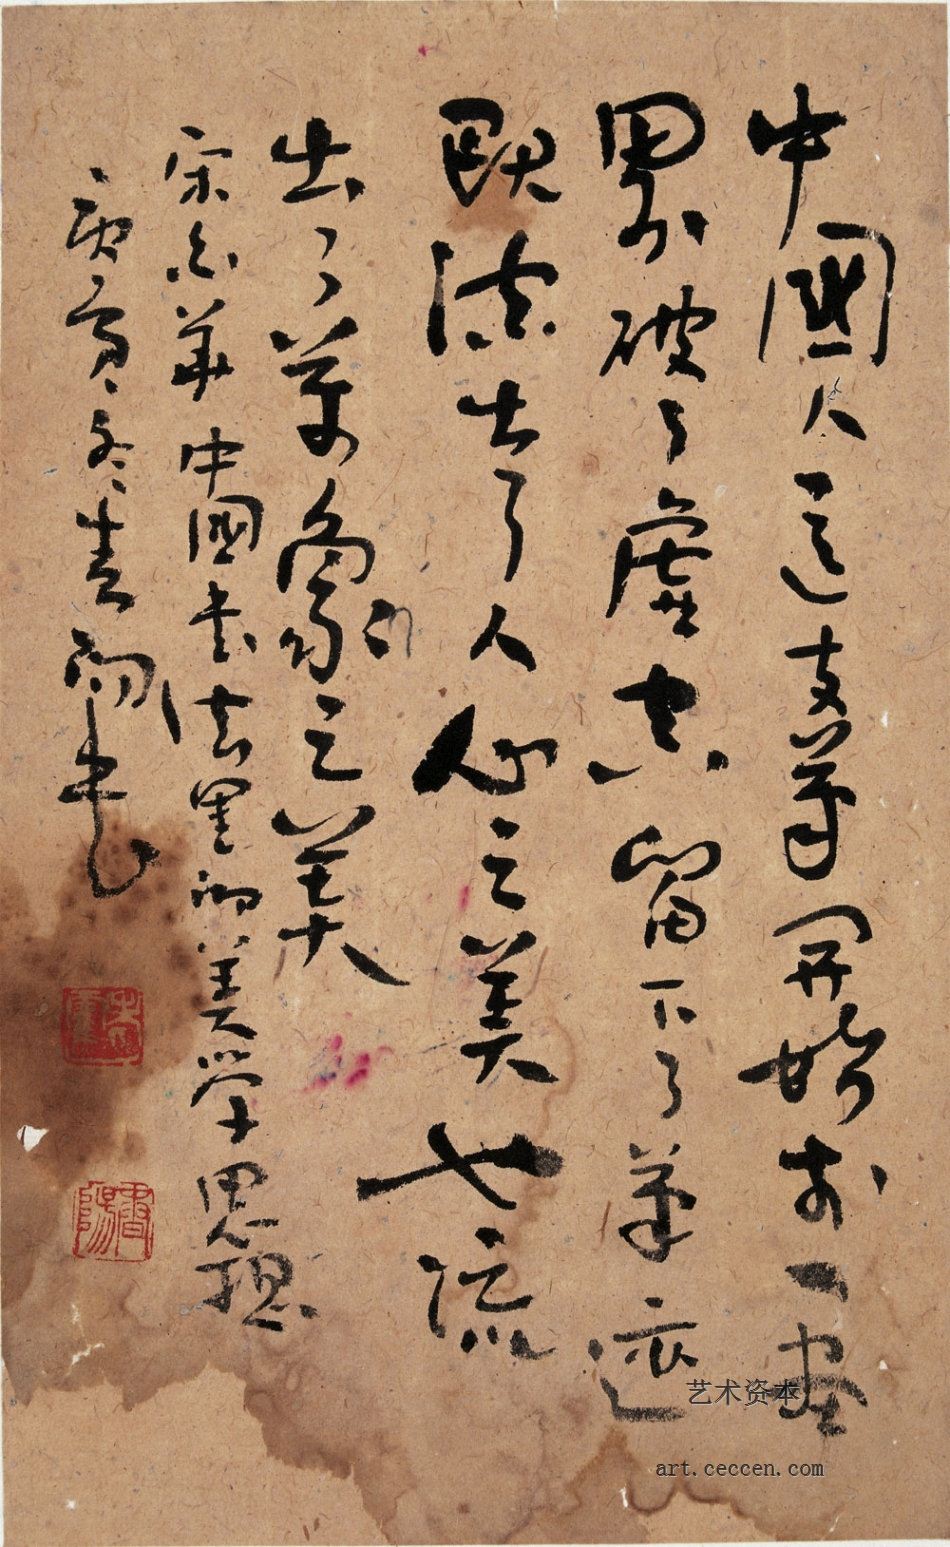 中國人這支筆開始於一畫
界破了虛空留下了筆迹
既流出了人心之美也流
出了萬象之美
宗白華中國書法里的美學思想
庚寅冬書
艺术资本
art.ceccen.com